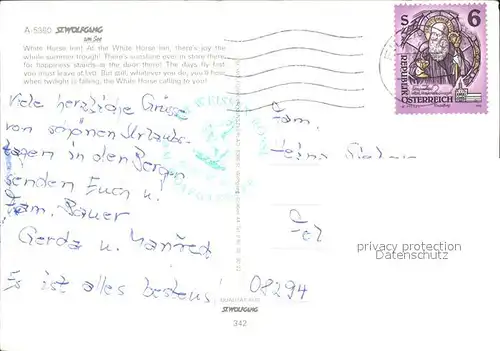 A-5360 ST. WOLFGANG
am See
White Horse Inn! At the White Horse Inn, there's joy the
whole summer trough! There's sunshine ever in store there,
for happiness stands at the door there! The days fly fast,
you must leave at last. But still, whatever you do, you'll hear
when twilight is falling, the White Horse calling to you!
Viele herzliche Grüsse
von schönen Urlaubs-
tagen in den Bergen
senden Euch u.
Fam. Bauer
Gerda u. Manfred
Es ist alles bestens!
Fam.
08294
S 6
REPUBLIK
ÖSTERREICH
privacy protection
Datenschutz
QUALITÄT AUS
ST. WOLFGANG
342